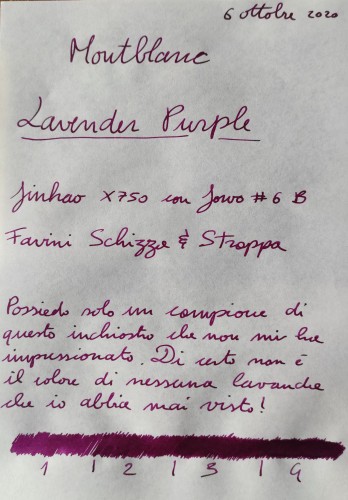 6 ottobre 2020
Montblanc
Lavender Purple
Jinhao X750 con Jowo #6 B
Favini Schizza & Strappa
Possiedo solo un campione di
questo inchiostro che non mi ha
impressionato. Di certo non è
il colore di nessuna lavanda
che io abbia mai visto!
1 | 2 | 3 | 4